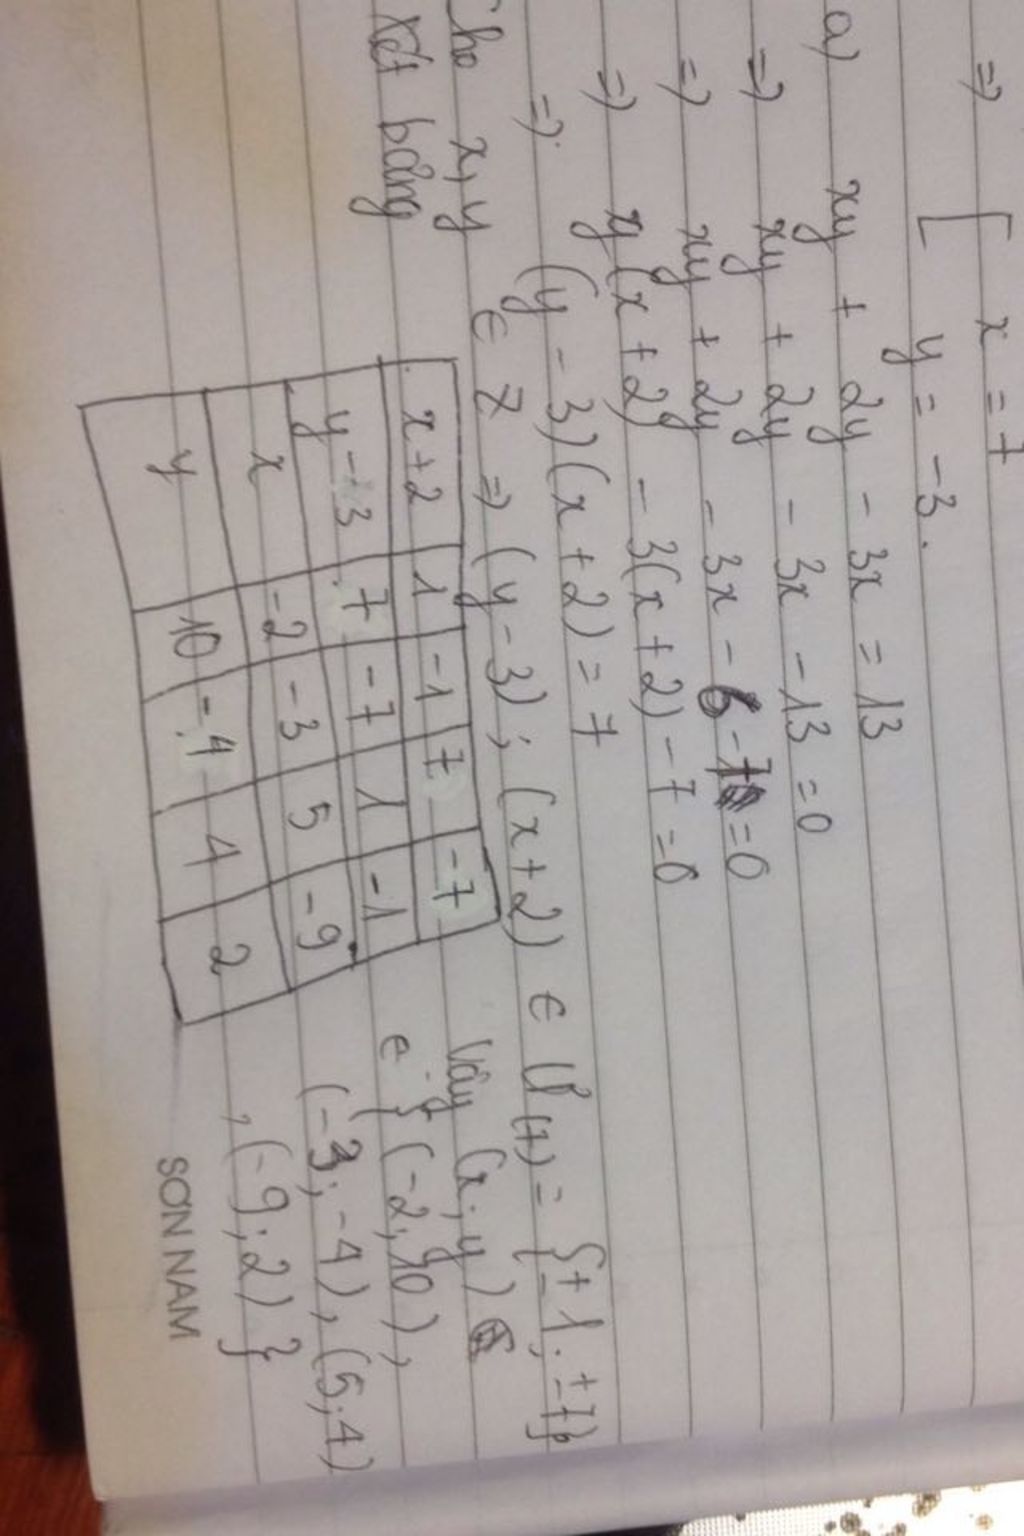 => [ x = 7
y = -3.
a) xy + 2y - 3x = 13
=> xy + 2y - 3x - 13 = 0
=> xy + 2y - 3x - 6 - 7 = 0
=> y(x + 2) - 3(x + 2) - 7 = 0
=> (y - 3)(x + 2) = 7
Cho x, y ∈ Z => (y - 3) ; (x + 2) ∈ Ư(7) = {± 1, ± 7}
Xét bảng
x + 2 1 -1 7 -7
y - 3 7 -7 1 -1
x -2 -3 5 -9
y 10 -4 4 2
Vậy (x ; y)
∈ {(-2; 10),
(-3; -4), (5; 4)
, (-9; 2)}
SƠN NAM